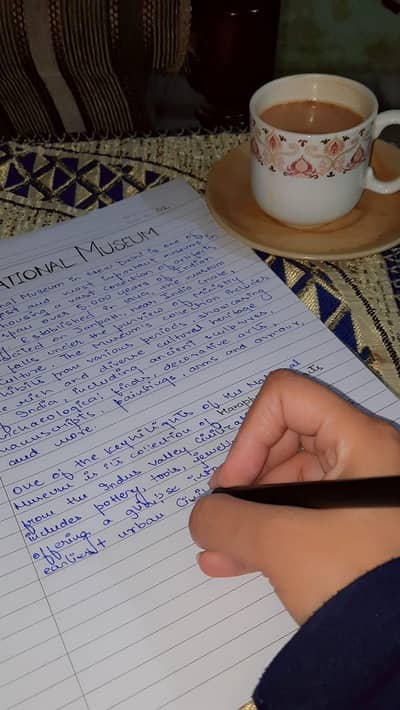 NATIONAL MUSEUM
Museum in New Delhi is one of
and most important museums
housing a vast collection of artifacts
over 5,000 years of Indian
Established in 1949, the museum
located on Janpath, near India Gate,
under the purview of the Ministry
Culture. The museum's collection includes
from various periods, showcasing
rich and diverse cultural heritage
of India, including ancient sculptures,
archaeological finds, decorative arts,
manuscripts, paintings arms and armour,
and more.
one of the key highlights of the National
Museum is its collection of Harappan
from the Indus valley civilization
includes pottery, tools, jewellery
offering a glimpse into
earliest urban civil